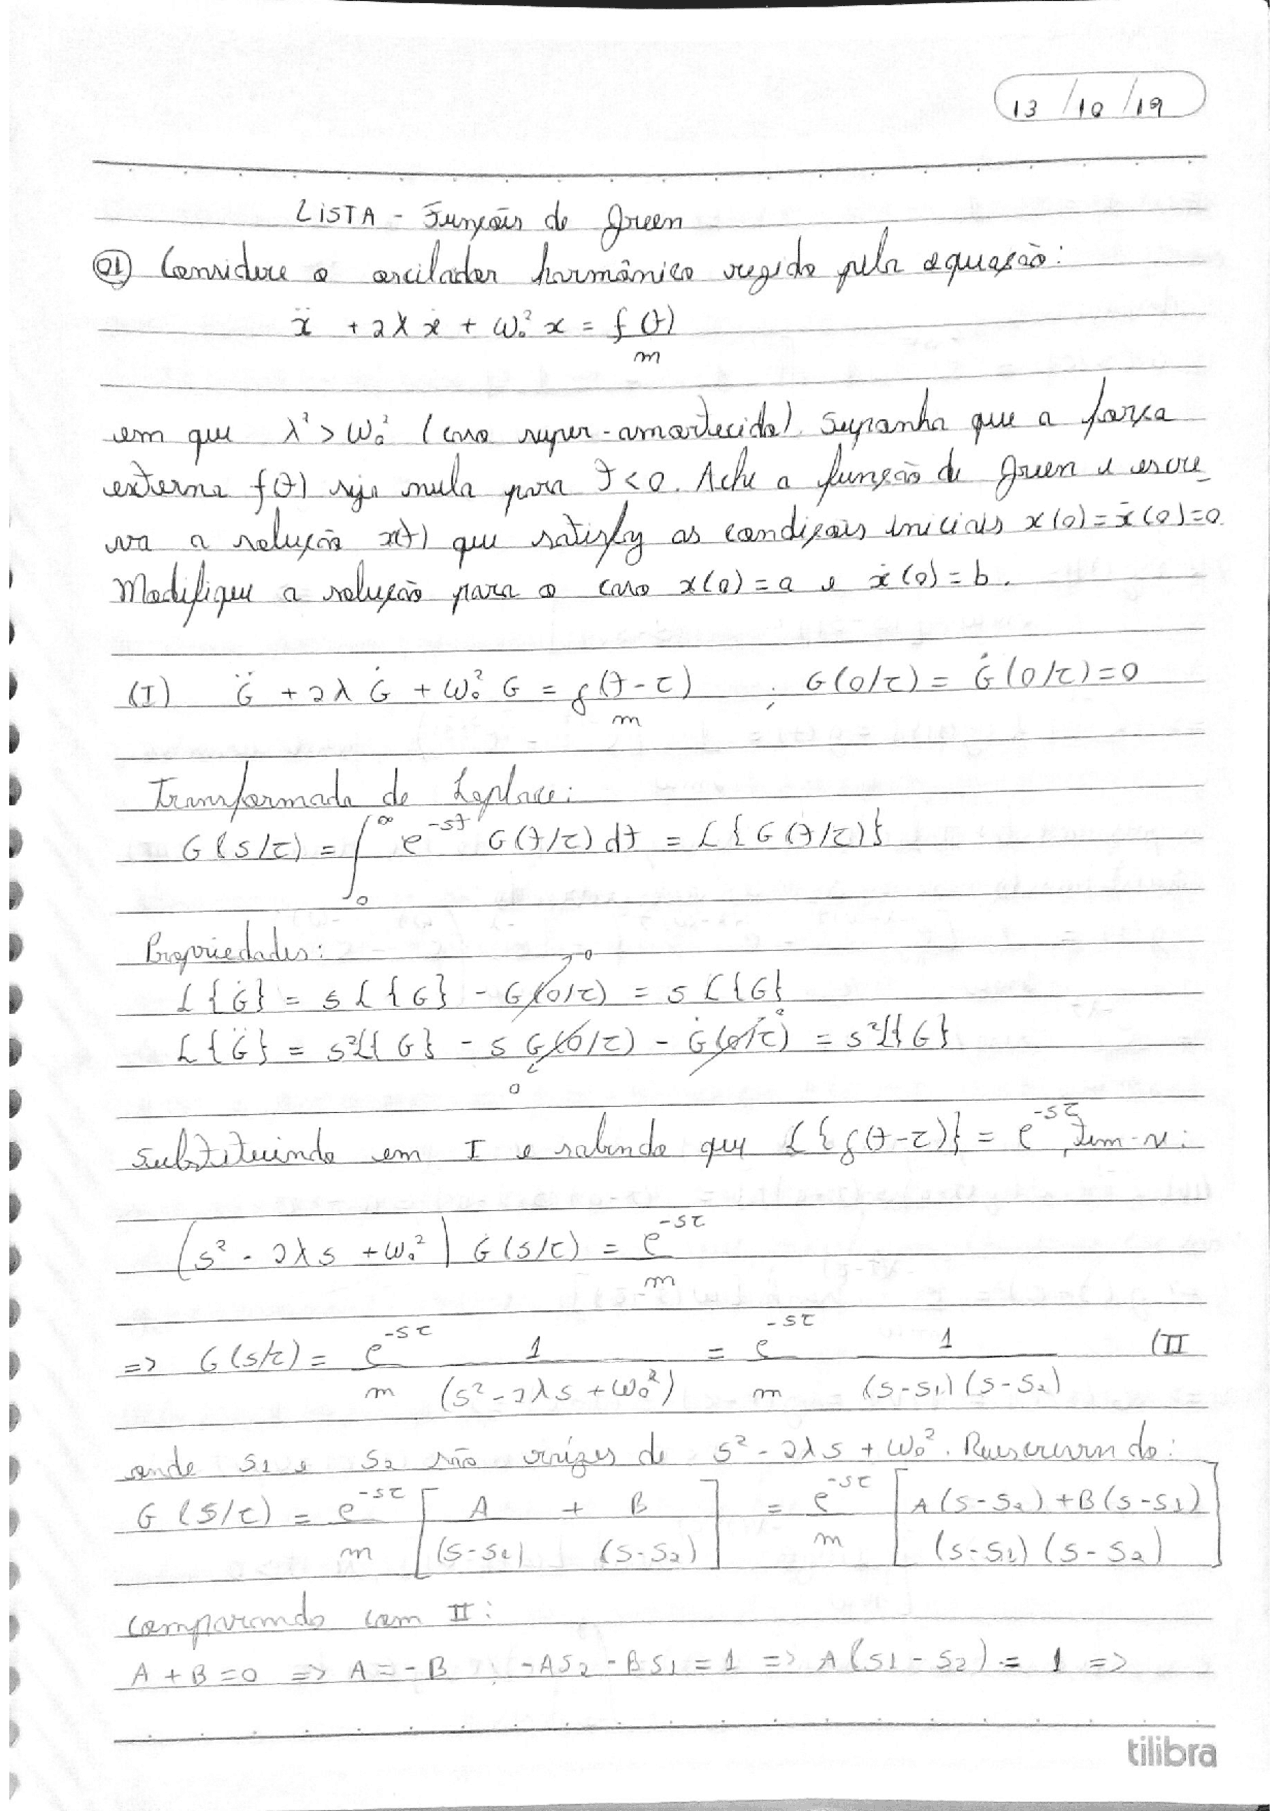 13/10/19
LISTA - Funções de Green
01) Considere o oscilador harmônico regido pela equação:
ẍ + 2λẋ + ω₀² x = f(t)
m
em que λ² > ω₀² (caso super-amortecido). Suponha que a força
externa f(t) seja nula para t < 0. Ache a função de Green e escre_
va a solução x(t) que satisfaz as condições iniciais x(0) = ẋ(0) = 0.
Modifique a solução para o caso x(0) = a e ẋ(0) = b.
(I) G̈ + 2λ Ġ + ω₀² G = δ(t-τ) ; G(0/τ) = Ġ(0/τ) = 0
m
Transformada de Laplace:
G(s/τ) = ∫₀^∞ e^{-st} G(t/τ) dt = L{G(t/τ)}
Propriedades:
L{Ġ} = s L{G} - G(0/τ) = s L{G}
L{G̈} = s²L{G} - s G(0/τ) - Ġ(0/τ) = s²L{G}
Substituindo em I e sabendo que L{δ(t-τ)} = e^{-sτ}, tem-se:
(s² - 2λs + ω₀²) G(s/τ) = e^{-sτ}
m
=> G(s/τ) = e^{-sτ} 1 = e^{-sτ} 1 (II
m (s² - 2λs + ω₀²) m (s-s₁)(s-s₂)
onde s₁ e s₂ são raízes de s² - 2λs + ω₀². Reescrevendo:
G(s/τ) = e^{-sτ} [ A + B ] = e^{-sτ} [ A(s-s₂) + B(s-s₁) ]
m (s-s₁) (s-s₂) m (s-s₁)(s-s₂)
comparando com II:
A + B = 0 => A = -B ; -As₂ - Bs₁ = 1 => A(s₁ - s₂) = 1 =>
tilibra